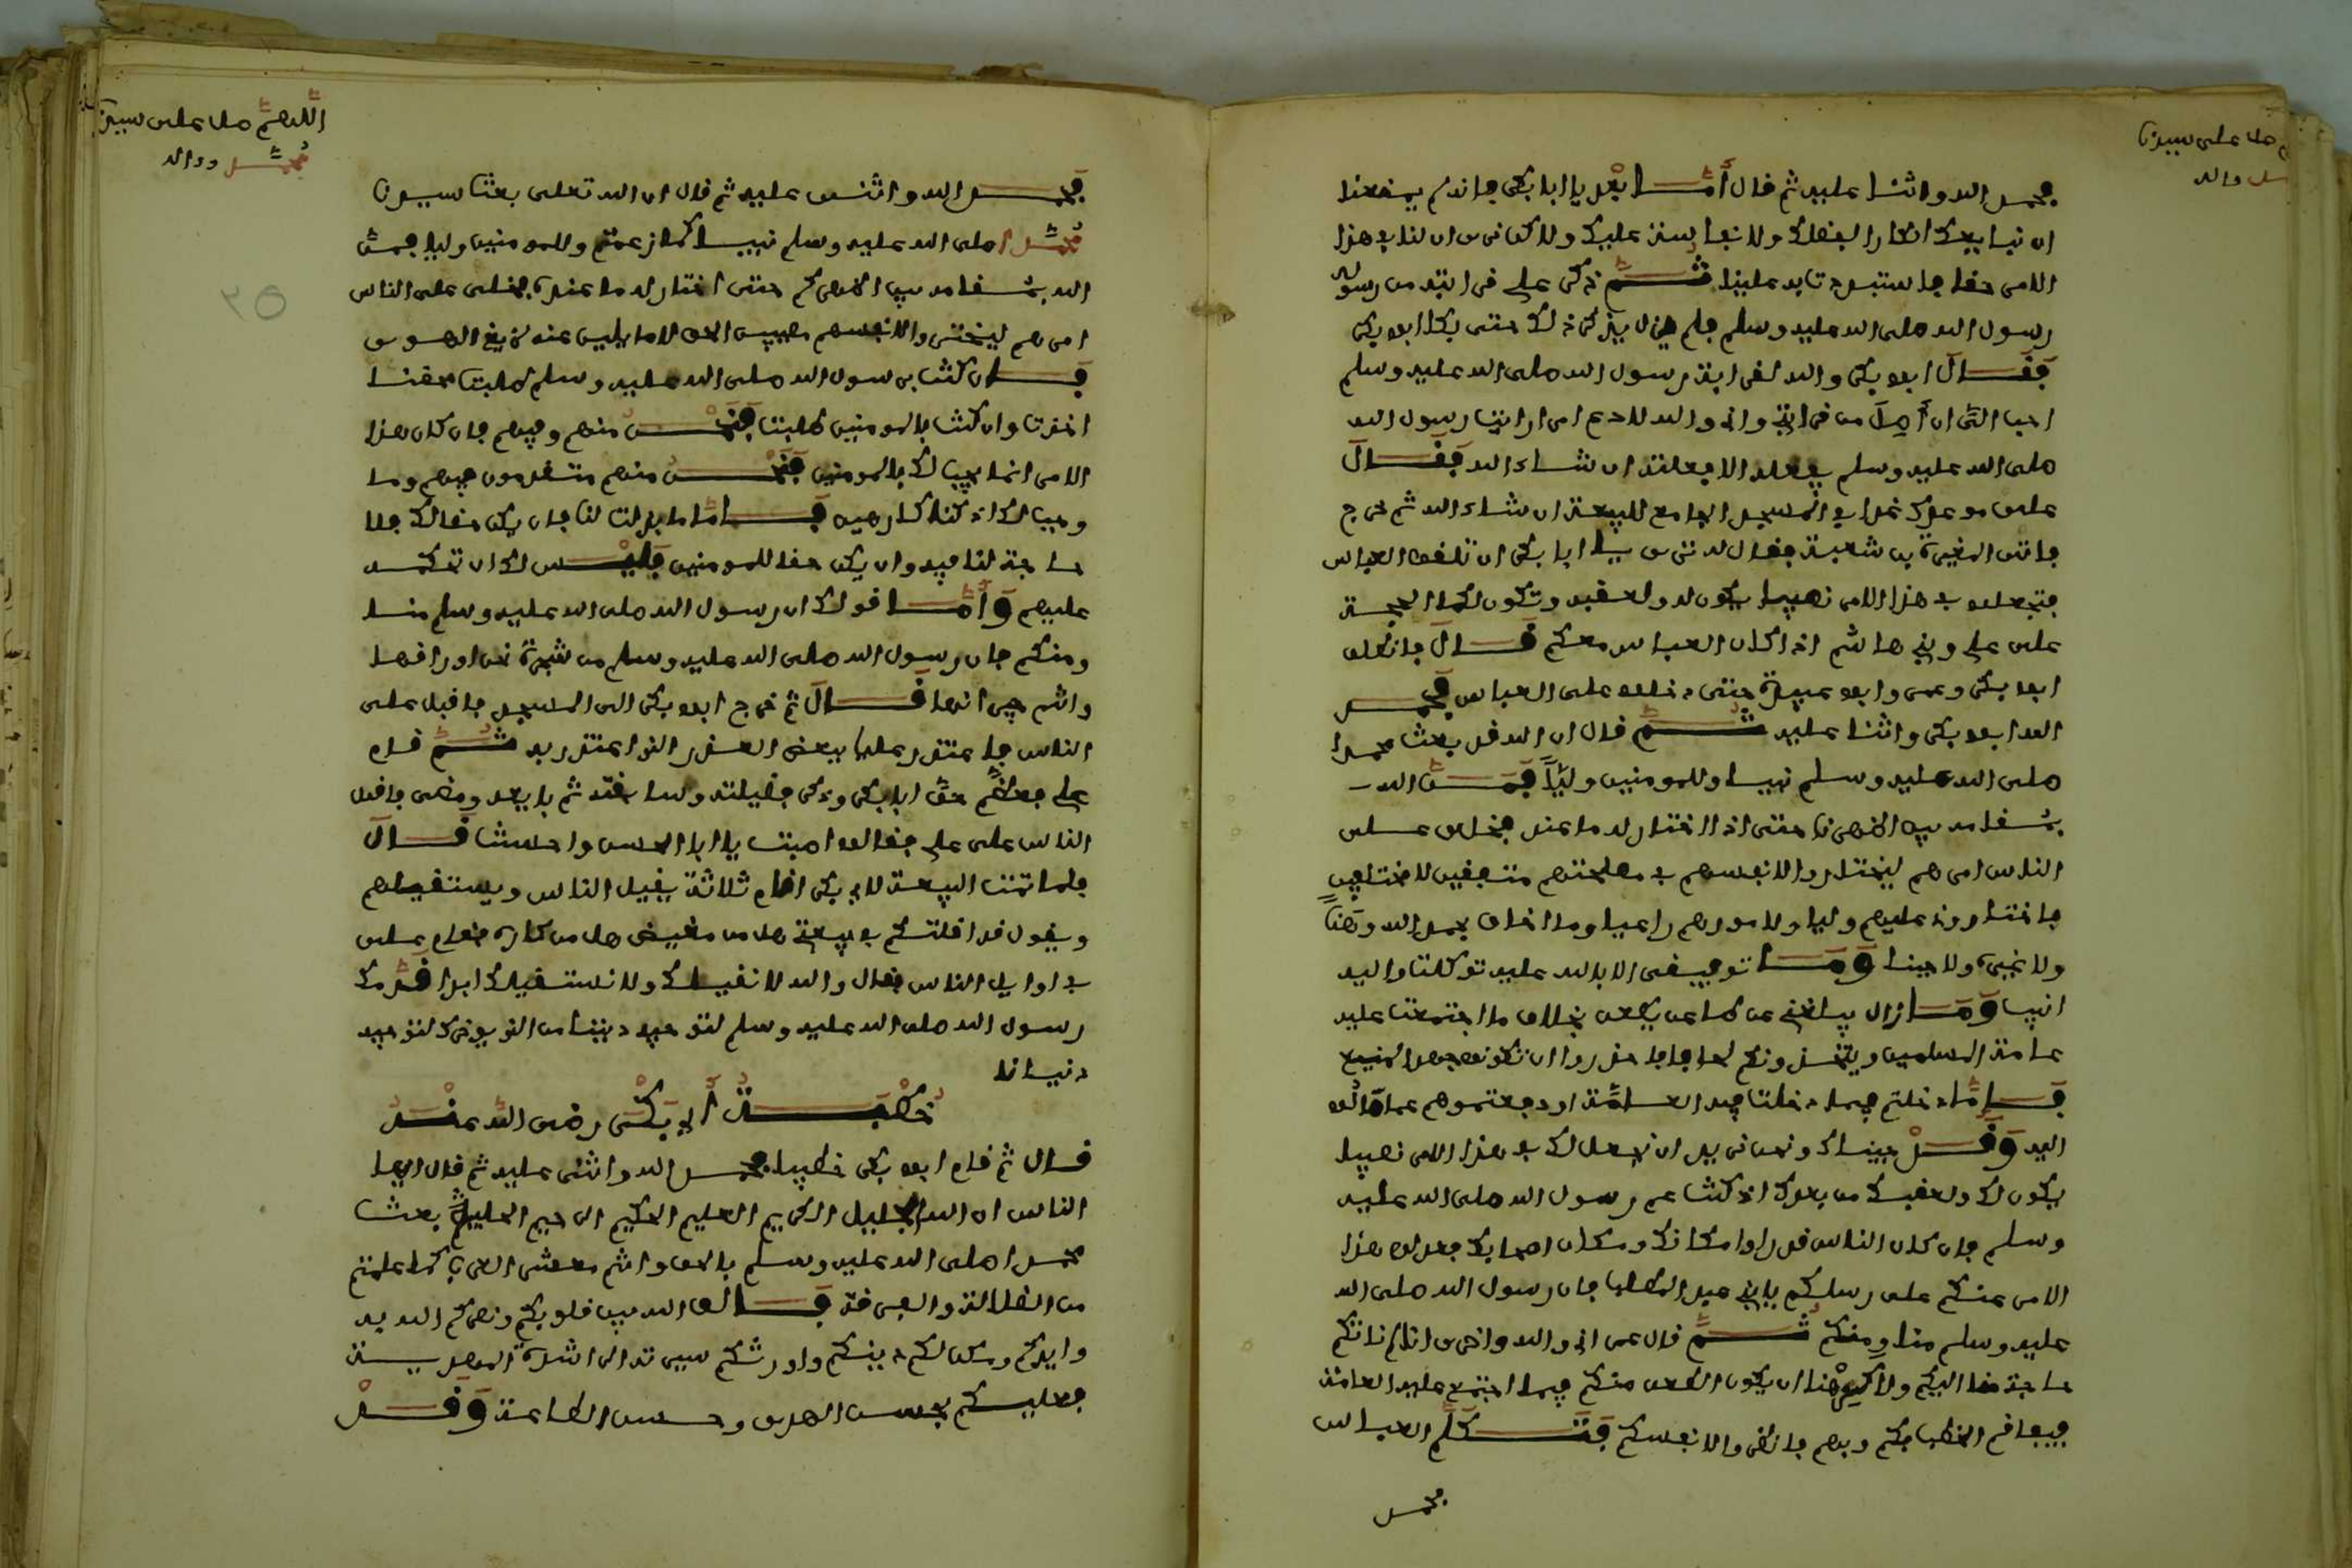 صل على سيدنا
محمد واله
فحمد الله واثنا عليه ثم قال أما بعد يا ابا بكر فانه لم يمنعنا
ان نبايعك انكارا لفضلك ولا نفاسة عليك ولاكنا نرى ان لنا في هذا
الامر حقا فاستبددتا به علينا ثم ذكر علي قرابته من رسول
رسول الله صلى الله عليه وسلم فلم يزل يذكر ذلك حتى بكا ابو بكر
فقال ابو بكر والله لقرابة رسول الله صلى الله عليه وسلم
احب الي ان أصل من قرابتي واني والله لا ادع امرا رايت رسول الله
صلى الله عليه وسلم يفعله الا فعلته ان شاء الله فقال
علي موعدك غدا في المسجد الجامع للبيعة ان شاء الله ثم خرج
فاتى المغيرة بن شعبة فقال له ترى يا ابا بكر ان تلقوا العباس
فتجعلوا في هذا الامر نصيبا يكون له ولعقبه وتكون لكما الحجة
على علي وبني هاشم اذا كان العباس معكم قال فانطلق
ابو بكر وعمر وابو عبيدة حتى دخلوا على العباس فحمد
الله ابو بكر واثنا عليه ثم قال ان الله قد بعث محمدا
صلى الله عليه وسلم نبيا وللمومنين وليا فمن الله
بمقامه بين اظهرنا حتى اذا اختار له ما عنده فخلى على
الناس امرهم ليختاروا لانفسهم في مصلحتهم متفقين لا مختلفين
فاختاروني عليهم وليا ولامورهم راعيا وما اخاف بحمد الله وهنا
ولا تحيرا ولا جبنا وما توفيقي الا بالله عليه توكلت واليه
انيب وما زال يبلغني عن طاعن يطعن بخلاف ما اجتمعت عليه
عامة المسلمين ويتخذونكم لحافا فاحذروا ان تكونوا جهدا لمنيع
فاما دخلتم فيما دخلت فيه العامة او دفعتموهم عما مالوا
اليه وقد جيناك ونحن نريد ان نجعل لك في هذا الامر نصيبا
يكون لك ولعقبك من بعدك اذ كنت عم رسول الله صلى الله عليه
وسلم فان كان الناس قد راوا مكانك ومكان اصحابك فعدلوا هذا
الامر عنكم على رسلكم يا بني عبد المطلب فان رسول الله صلى الله
عليه وسلم منا ومنكم ثم قال عمر اي والله واخرى انا لم ناتكم
حاجة منا اليكم ولاكن كرهنا ان يكون الطعن منكم فيما اجتمع عليه العامة
فيتفاقم الخطب بكم وبهم فانظروا لانفسكم فتكلم العباس
فحمد
اللهم صل على سيدنا
محمد وواله
٣٥
فحمد الله واثنى عليه ثم قال ان الله تعلى بعث سيدنا
محمدا صلى الله عليه وسلم نبيا كما زعمتم وللمومنين وليا فمن
الله بمقامه بين اظهركم حتى اختار له ما عنده فخلى على الناس
امرهم ليختروا لانفسهم مصيبين الحق لا مايلين عنه بزيغ الهوى
فان كنت برسول الله صلى الله عليه وسلم طلبت فحقنا
اخذت وان كنت بالمومنين طلبت فنحن منهم وفيهم فان كان هذا
الامر انما يجب لك بالمومنين فنحن منهم متقدمون فيهم وما
وجب لك اذ كنا كارهين فاما ما بذلت لنا فان يكن حقا لك فلا
حاجة لنا فيه وان يكن حقا للمومنين فليس لك ان تحكم
عليهم وأما قولك ان رسول الله صلى الله عليه وسلم منا
ومنكم فان رسول الله صلى الله عليه وسلم من شجرة نحن اوراقها
وانتم جيرانها قال ثم خرج ابو بكر الى المسجد فاقبل على
الناس فاعتذر عليا ببعض العذر الذي اعتذر به ثم قام
علي فعظم حق ابا بكر وذكر فضيلته وسابقته ثم بايعه ومضى فاقبل
الناس على علي فقالوا اصبت يا ابا الحسن واحسنت قال
فلما تمت البيعة لابي بكر اقام ثلاثة يقيل الناس ويستقيلهم
ويقول قد اقلتكم في بيعتي هل من مغيض هل من كاره فقام علي
في اوايل الناس فقال والله لا نقيلك ولا نستقيلك ابدا قدمك
رسول الله صلى الله عليه وسلم لتوحيد ديننا من الذي يوخرك لتوحيد
دنيانا
خطبة أبي بكر رضى الله عنه
قال ثم قام ابو بكر خطيبا فحمد الله واثنى عليه ثم قال ايها
الناس ان الله الجليل الكريم العليم الحكيم الرحيم الحليم بعث
محمدا صلى الله عليه وسلم بالحق وانتم معشر العرب كما علمتم
من الضلالة والفرقة فالف الله بين قلوبكم ونصركم الله به
وايدكم ومكن لكم دينكم واورثكم سيرته الراشدة المهدية
فعليكم بحسن الهدى وحسن الطاعة وقد